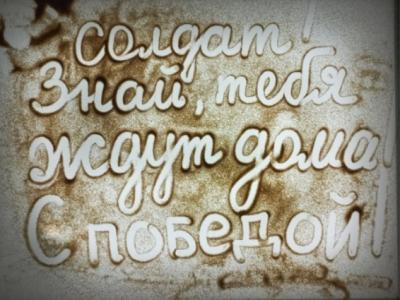 Солдат!
Знай, тебя
ждут дома!
С победой!